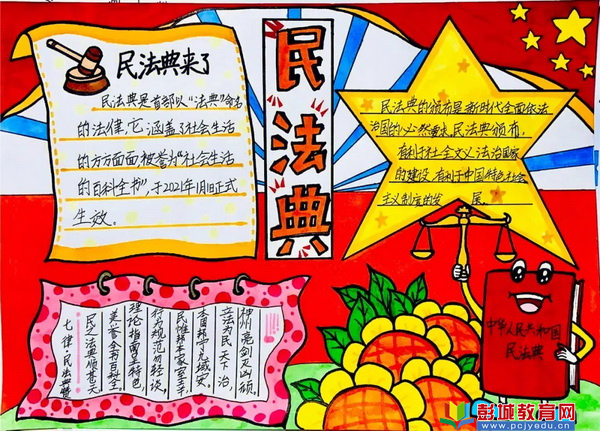 民法典来了
民法典是首部以“法典”命名
的法律,它涵盖了社会生活
的方方面面被誉为“社会生活
的百科全书”,于2021年1月1日正式
生效。
民法典
民法典的颁布是新时代全面依法
治国的必然要求,民法典颁布,
有利于社会主义法治国家
的建设,有利于中国特色社会
主义制度的发展。
神州亮剑及凶顽,
立法为民天下治,
本固邦宁九域安,
民惟邦本家室幸,
行为规范勿轻谈,
理论指南呈特色,
美誉全书百科全,
民之法典顺苍天
七律·民法典赞
中华人民共和国
民法典
彭诚教育网
www.pcjyedu.cn